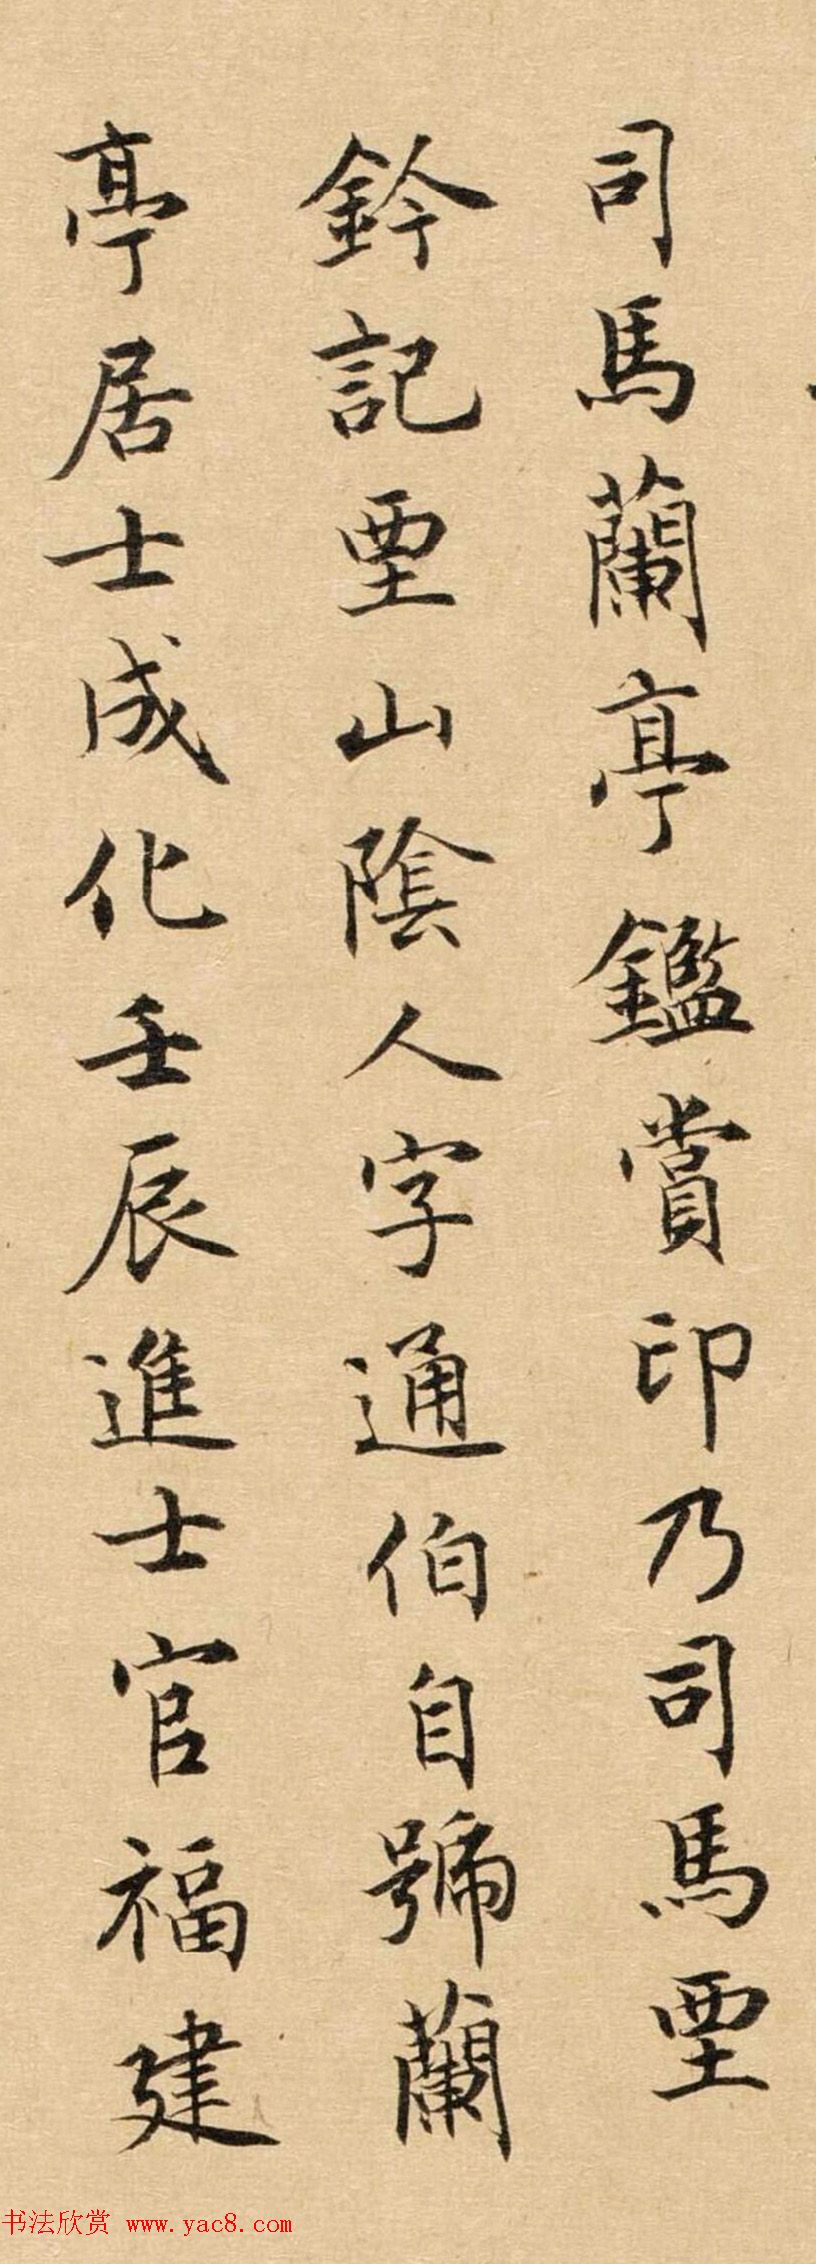 司馬蘭亭鑑賞印乃司馬垔
鈐記垔山陰人字通伯自號蘭
亭居士成化壬辰進士官福建
书法欣赏 www.yac8.com